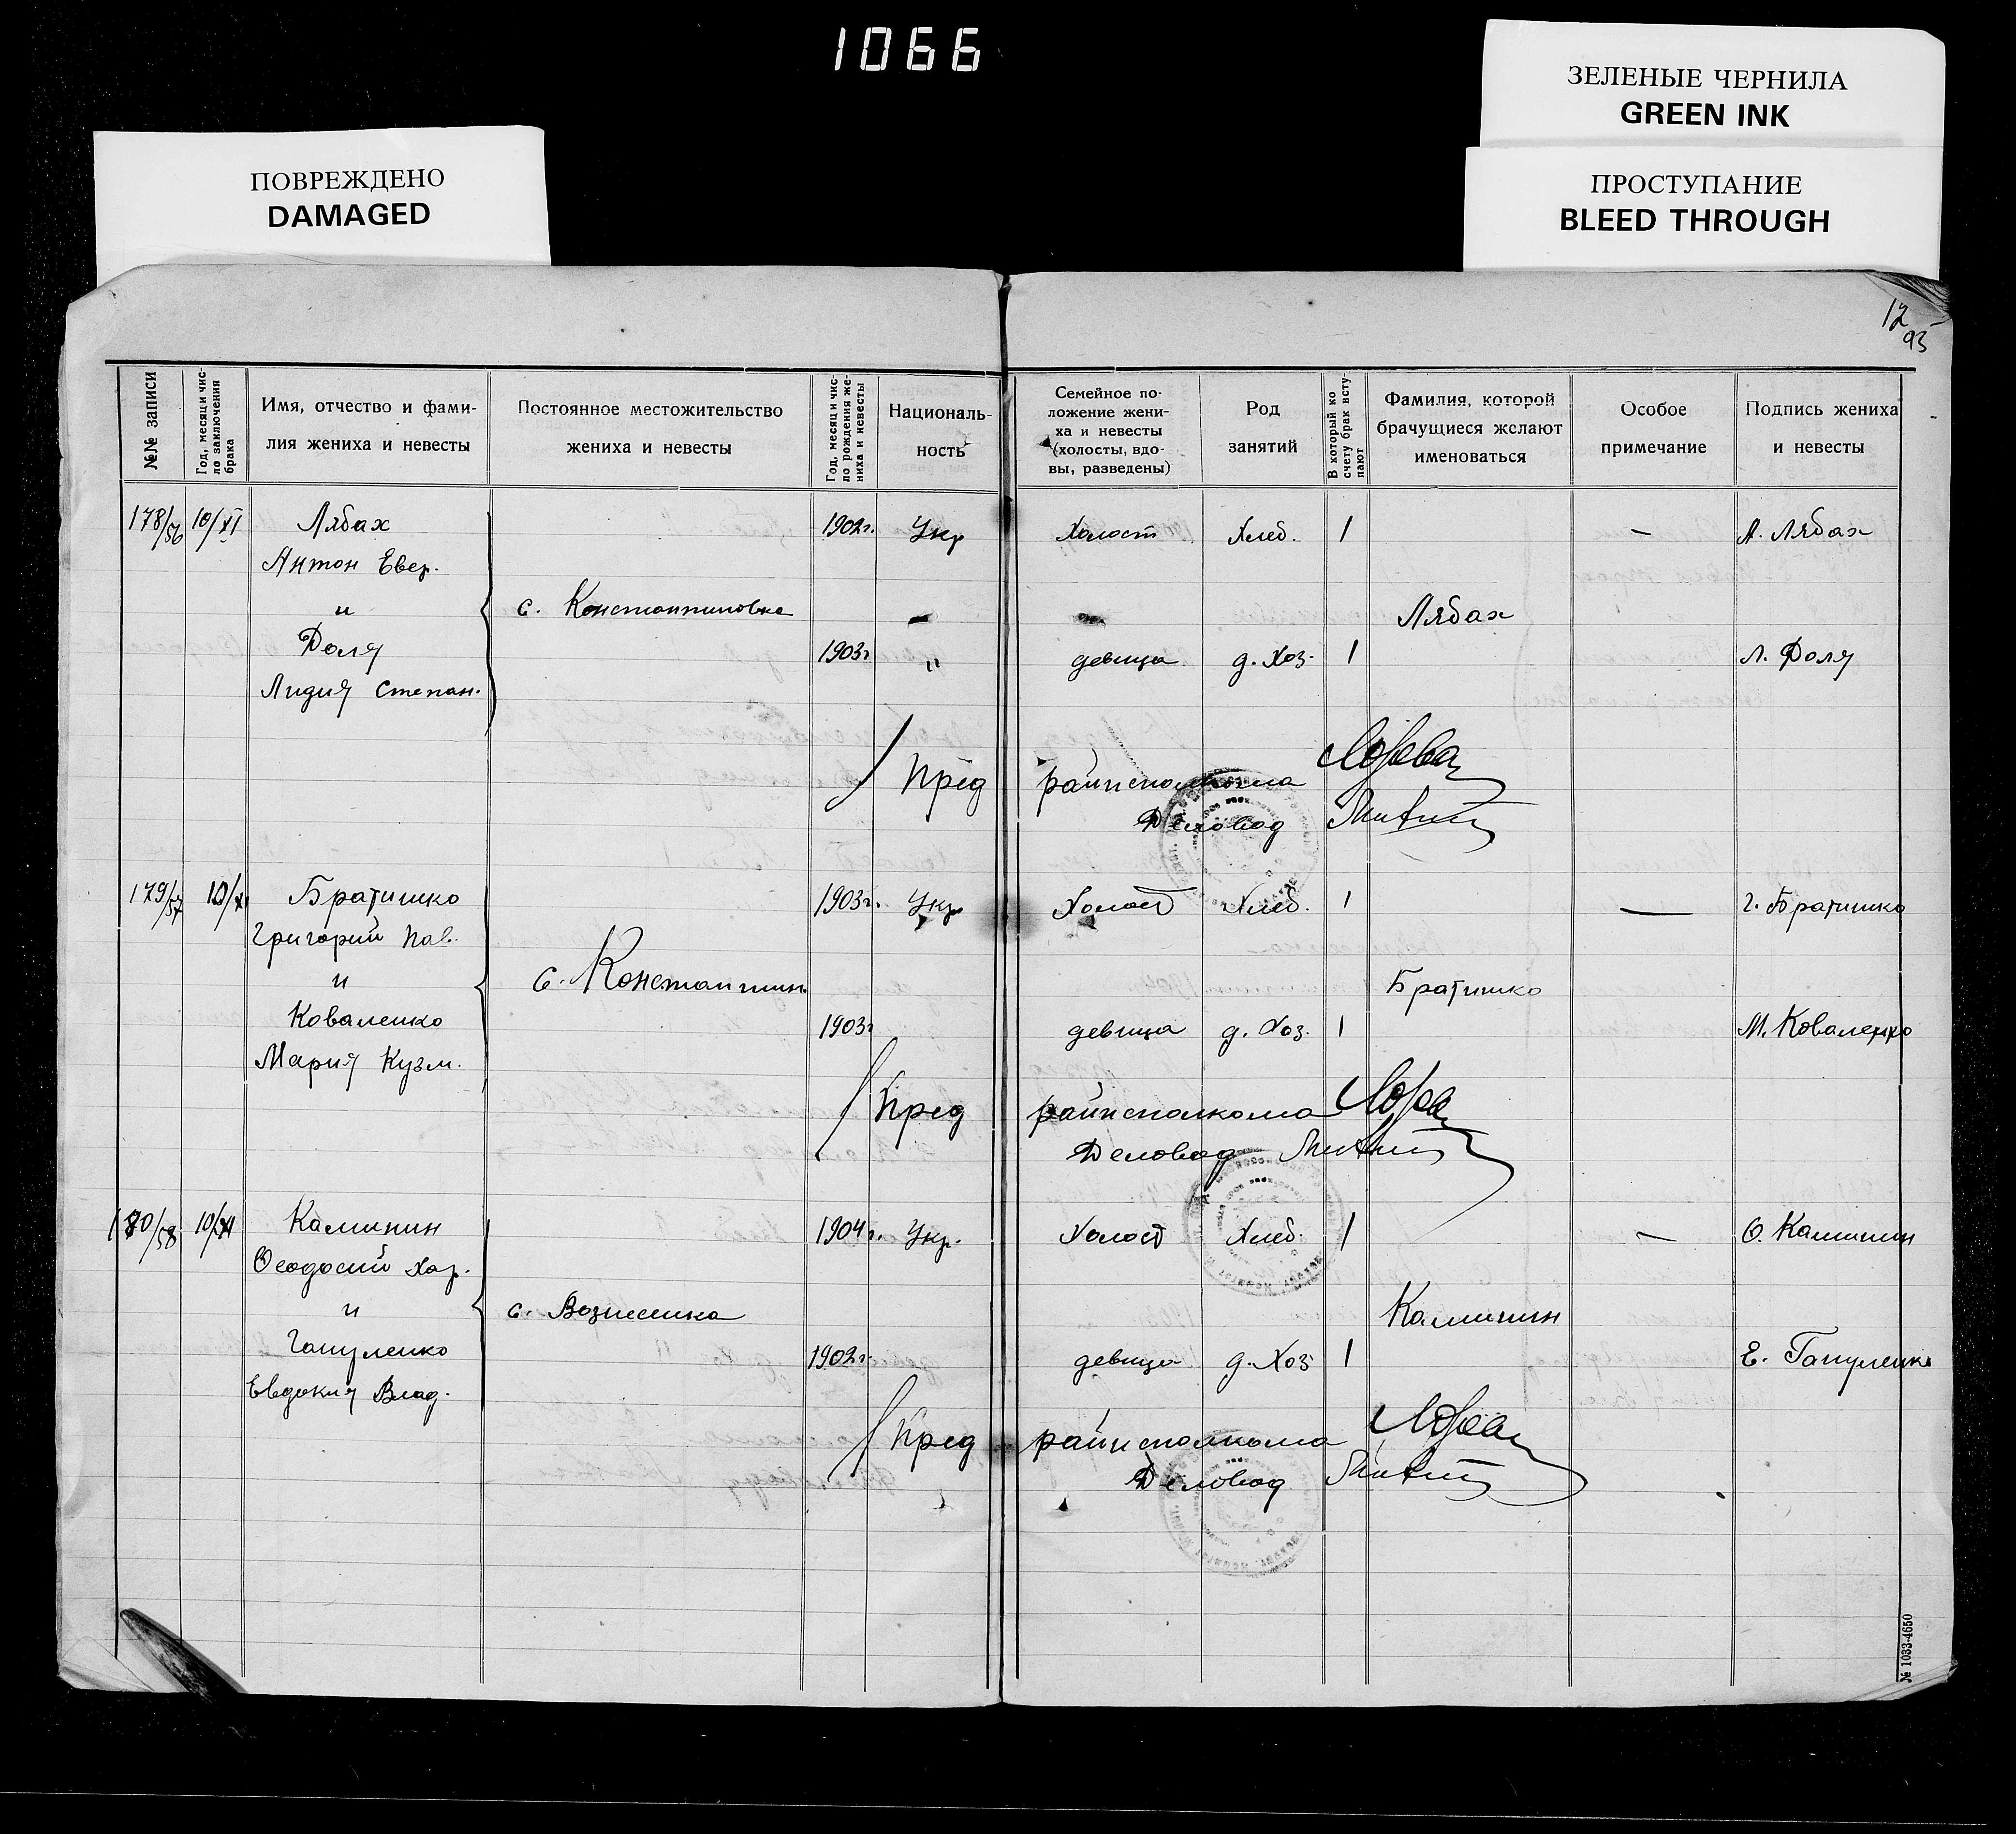 1066
ЗЕЛЕНЫЕ ЧЕРНИЛА
GREEN INK
ПОВРЕЖДЕНО
DAMAGED
ПРОСТУПАНИЕ
BLEED THROUGH
12
95
№№ записи
Год, месяц и чис-
ло заключения
брака
Имя, отчество и фами-
лия жениха и невесты
Постоянное местожительство
жениха и невесты
Год, месяц и чис-
ло рождения же-
ниха и невесты
Националь-
ность
Семейное по-
ложение жени-
ха и невесты
(холосты, вдо-
вы, разведены)
Род
занятий
В который ко
счету брак всту-
пают
Фамилия, которой
брачущиеся желают
именоваться
Особое
примечание
Подпись жениха
и невесты
178/56 10/XI Лябах 1902г. Укр Холост Хлеб. 1 — А. Лябах
Антон Евер.
и с. Константиновка Лябах
Доля 1903г " девица д. Хоз. 1 Л. Доля
Лидия Степан.
Пред райисполкома
Деловод
179/57 10/XI Братишко 1903г. Укр Холост Хлеб. 1 — Г. Братишко
Григорий Пав.
и с. Константин. Братишко
Коваленко 1903г девица д. Хоз. 1 М. Коваленко
Мария Кузм.
Пред райисполкома
Деловод
180/58 10/XI Калинин 1904г. Укр. Холост Хлеб. 1 — Ѳ. Калинин
Ѳеодосий Хар.
и с. Вознесенка Калинин
Гапуленко 1902г. девица д. Хоз 1 Е. Гапуленко
Евдокия Влад.
Пред райисполкома
Деловод
№ 1033-4650